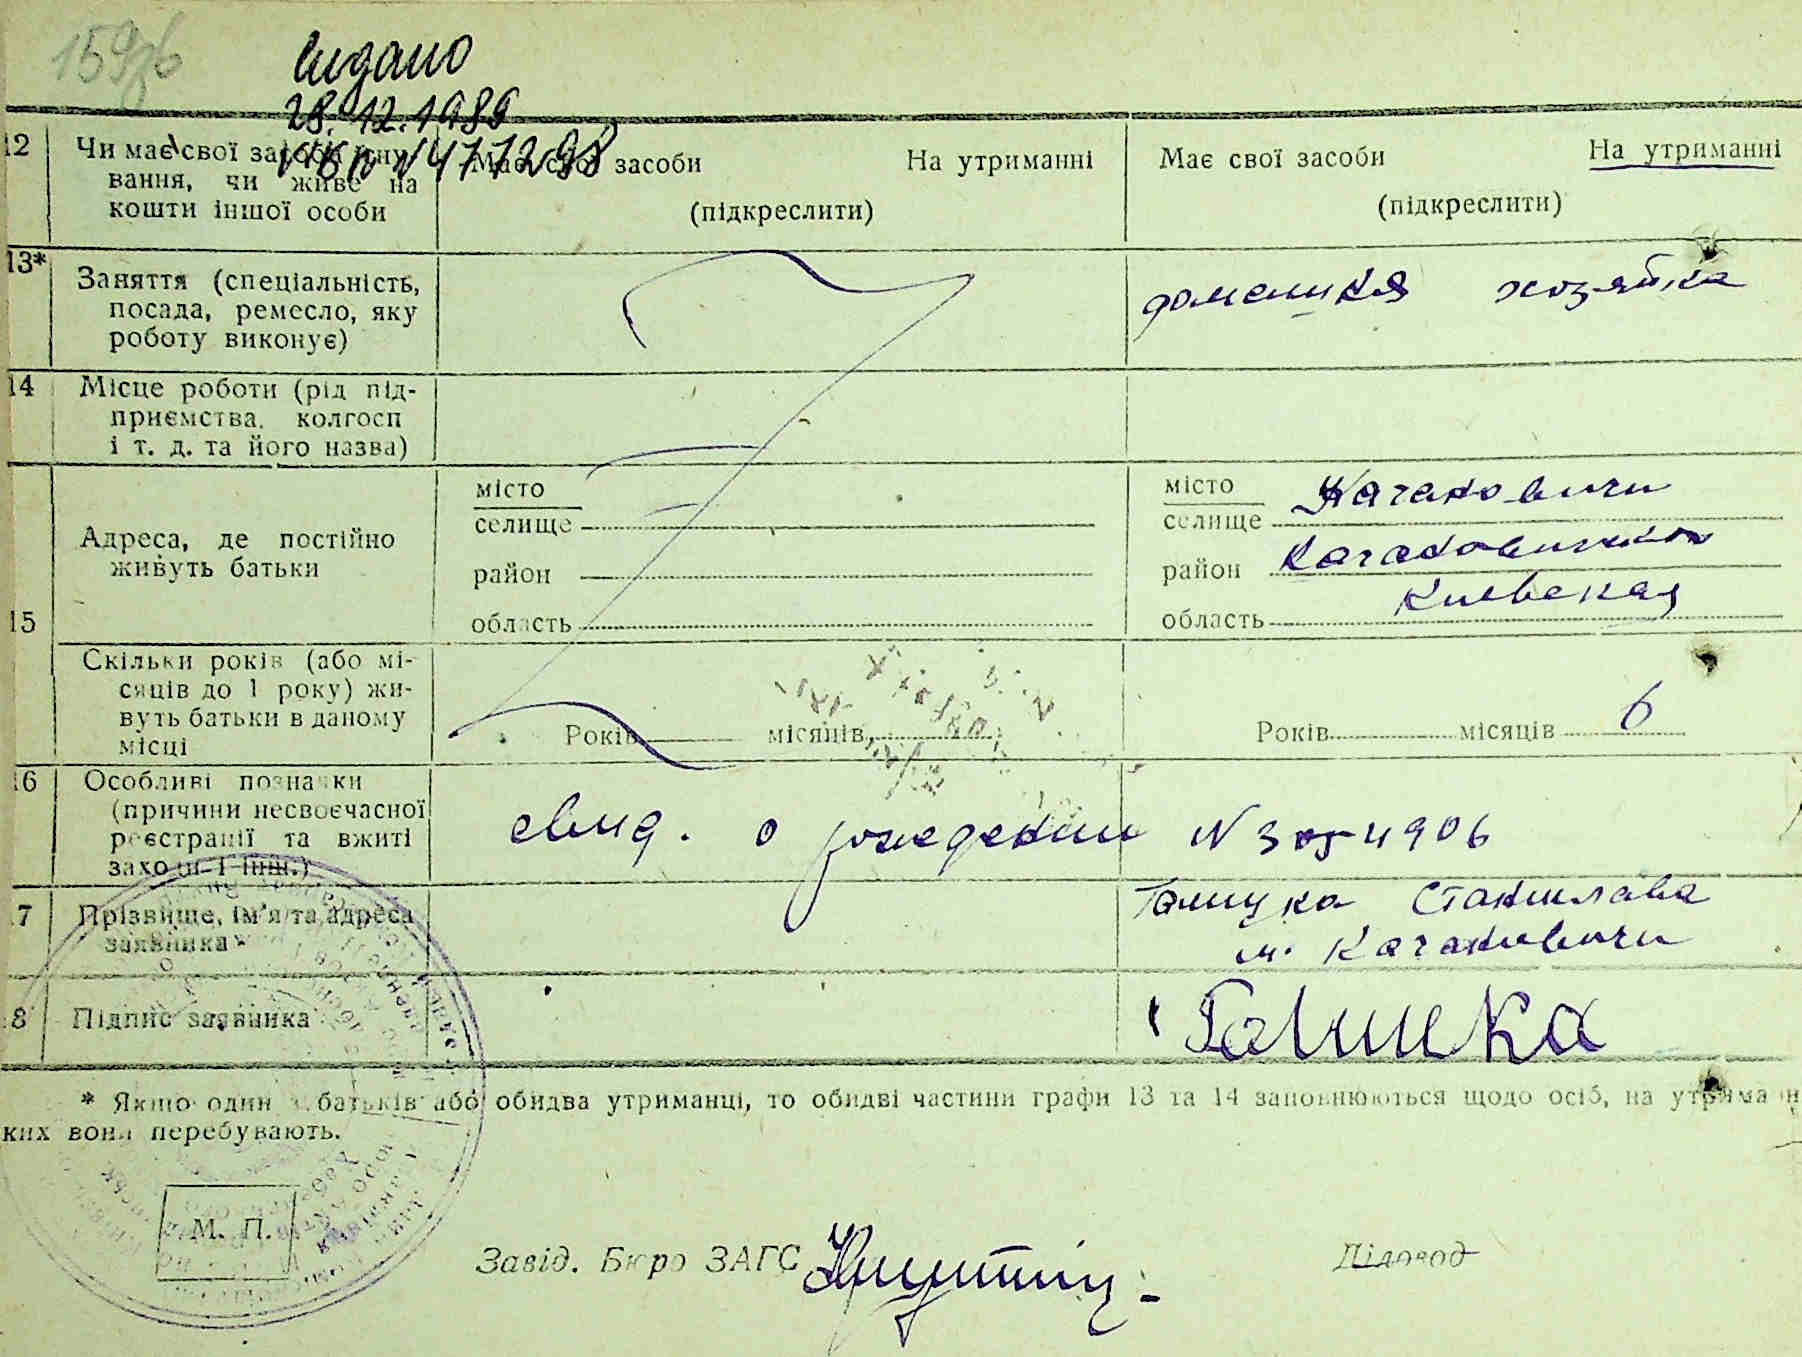 159
видано
28.12.1989
V БК N 477298
12 Чи має свої засоби існу-
вання, чи живе на
кошти іншої особи
Має свої засоби На утриманні
(підкреслити)
Має свої засоби На утриманні
(підкреслити)
13* Заняття (спеціальність,
посада, ремесло, яку
роботу виконує)
домашняя хозяйка
14 Місце роботи (рід під-
приємства, колгосп
і т. д. та його назва)
15 Адреса, де постійно
живуть батьки
місто
селище
район
область
місто Кагановичи
селище
район Кагановичский
область Киевская
Скільки років (або мі-
сяців до 1 року) жи-
вуть батьки в даному
місці
Років місяців
Років місяців 6
16 Особливі позначки
(причини несвоєчасної
реєстрації та вжиті
заходи і інш.)
свид. о рождении N 3054906
17 Прізвище, ім'я та адреса
заявника
Галицка Станислава
м. Кагановичи
18 Підпис заявника
* Якщо один з батьків або обидва утриманці, то обидві частини графи 13 та 14 заповнюються щодо осіб, на утриманн
ких вони перебувають.
М. П.
Завід. Бюро ЗАГС
Діловод